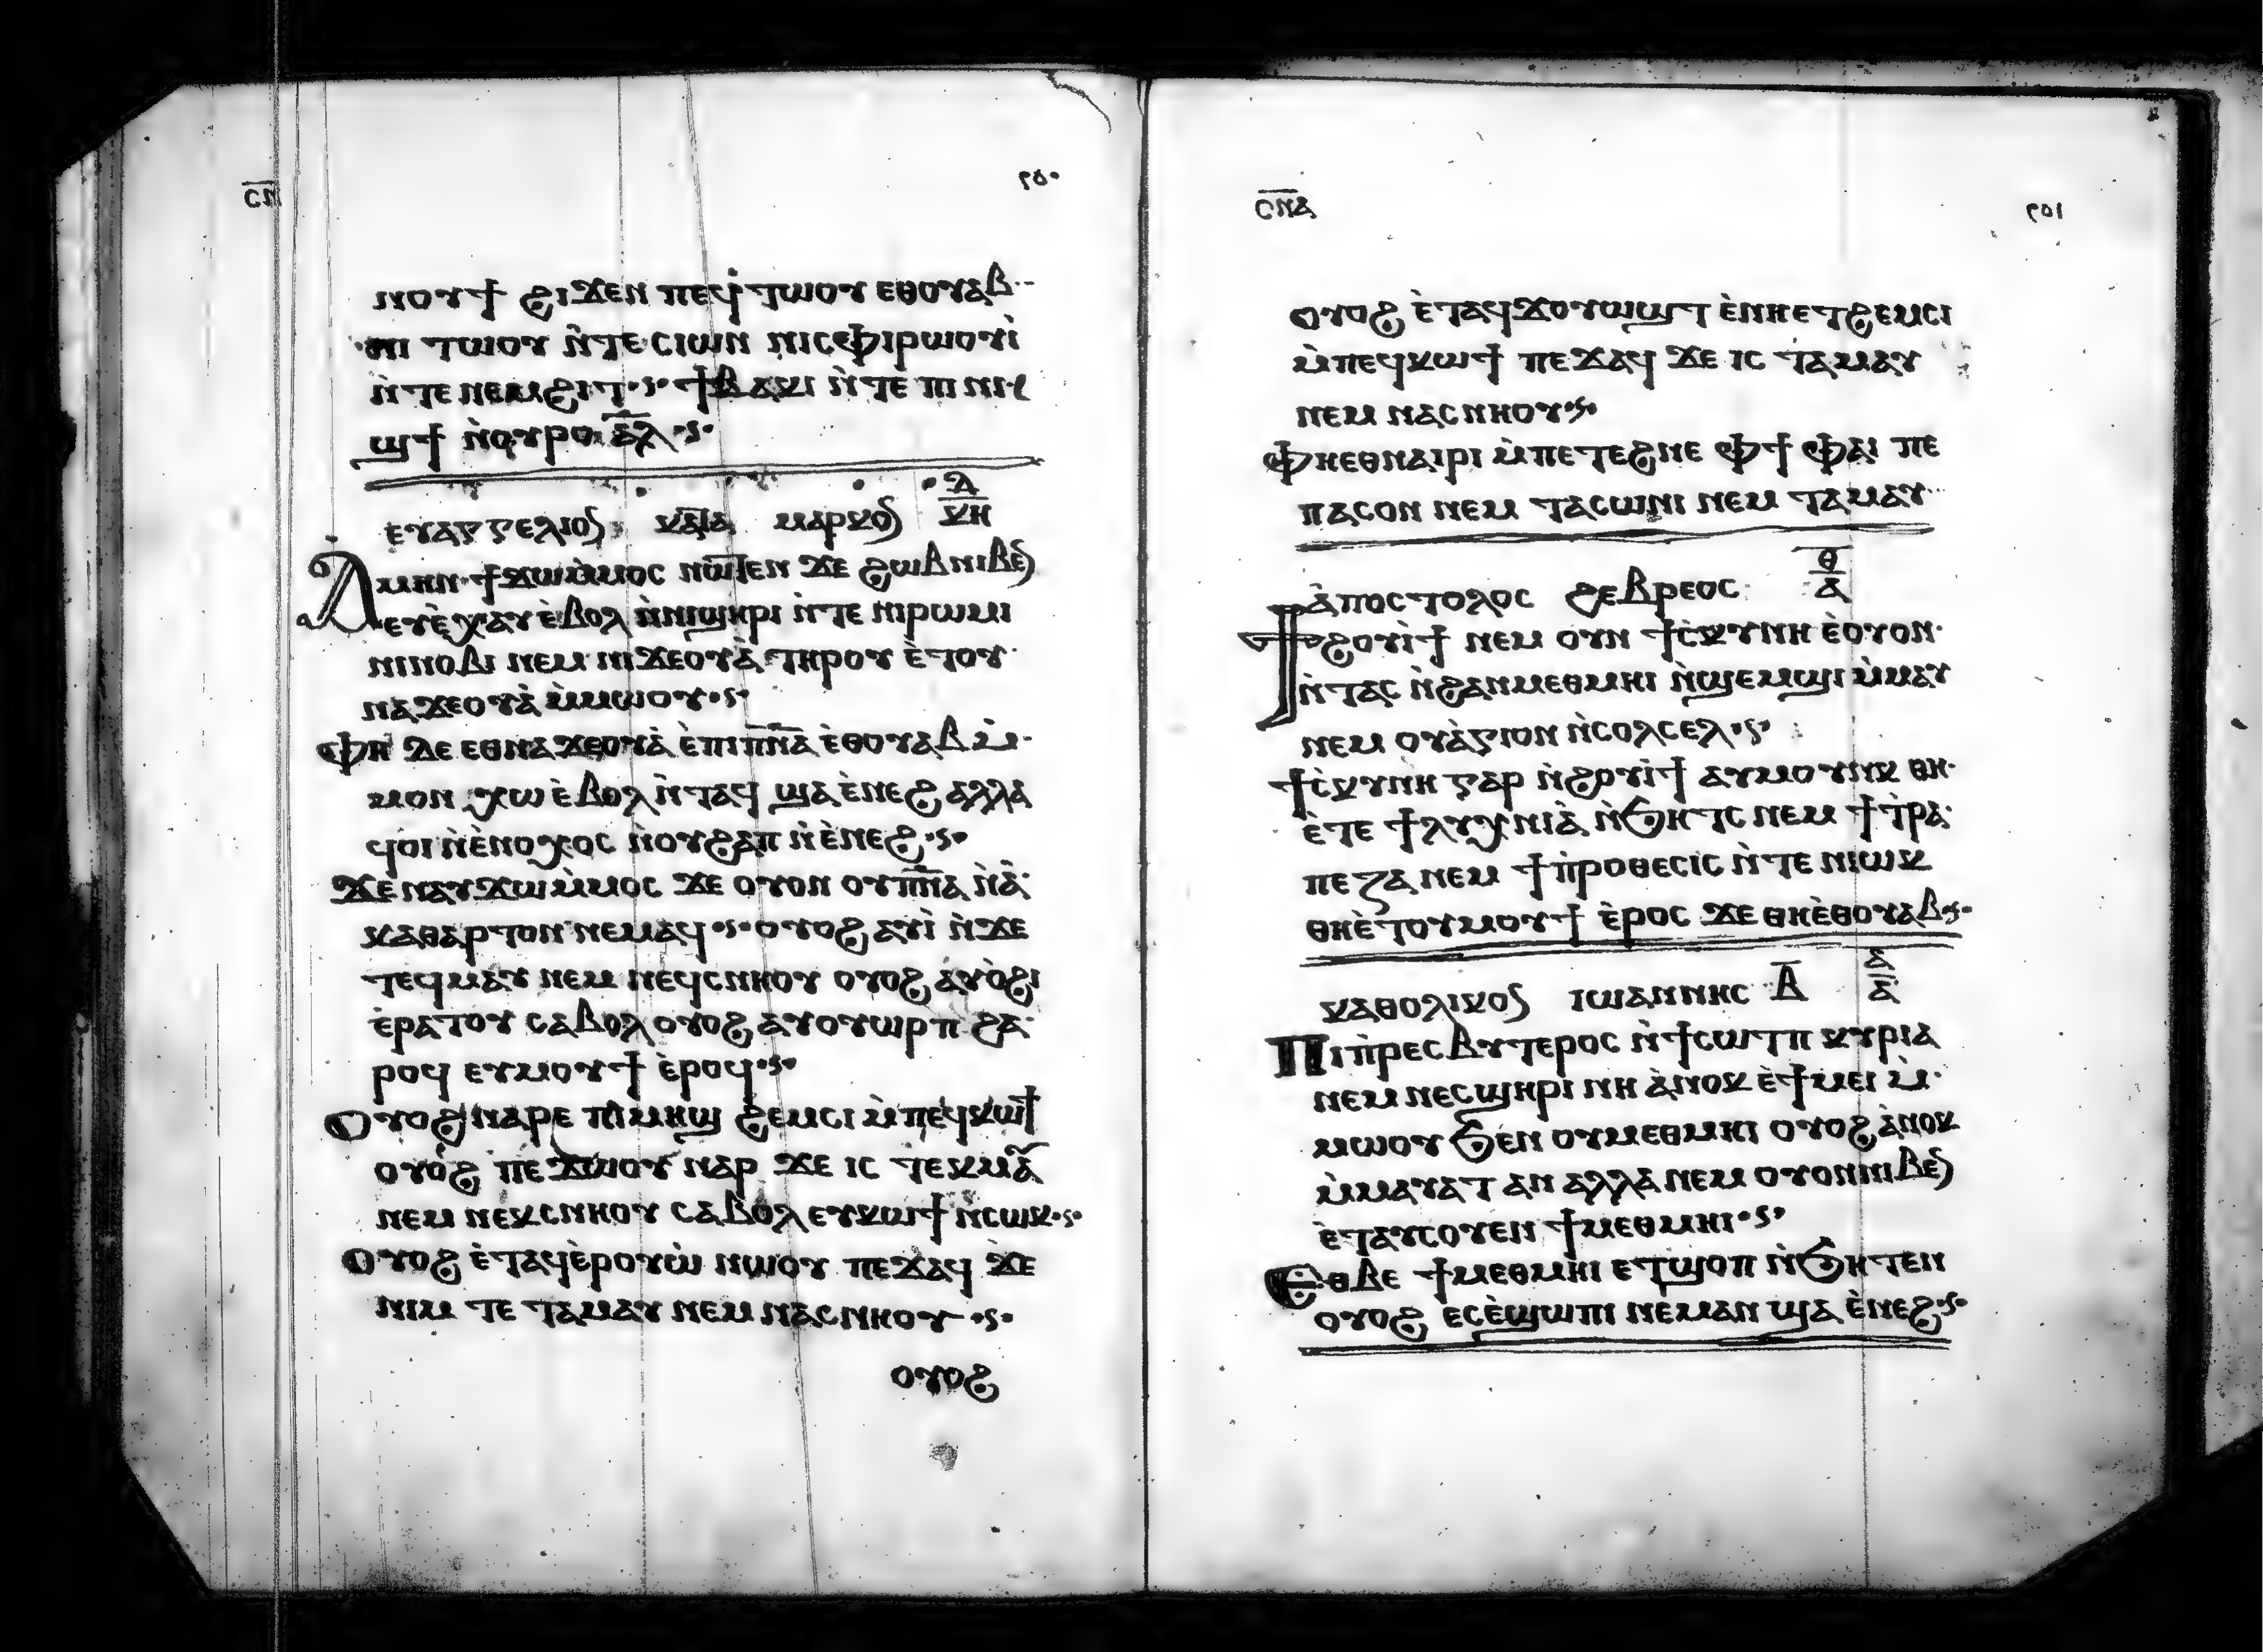 ⲥ̅ⲛ̅
ⲛⲟⲩϯ ϩⲓϫⲉⲛ ⲡⲉϥⲧⲱⲟⲩ ⲉⲑⲟⲩⲁⲃ
ⲛⲓ ⲧⲱⲟⲩ ⲛ̀ⲧⲉ ⲥⲓⲱⲛ ⲛⲓⲥⲫⲓⲣⲱⲟⲩⲓ̀
ⲛ̀ⲧⲉ ⲛⲉⲙϩⲓⲧ ϯⲃⲁⲕⲓ ⲛ̀ⲧⲉ ⲡⲓ ⲛⲓ
ϣϯ ⲛ̀ⲟⲩⲣⲟ ⲁ̅ⲗ̅
ⲉⲩⲁⲅⲅⲉⲗⲓⲟ ⲕⲁⲧⲁ ⲙⲁⲣⲕⲟ ⲕⲏ
Ⲁⲙⲏⲛ ϯϫⲱⲙ̀ⲙⲟⲥ ⲛⲱⲧⲉⲛ ϫⲉ ϩⲱⲃⲛⲓⲃⲉ
ⲉⲩⲉ̀ⲭⲁⲩ ⲉ̀ⲃⲟⲗ ⲛ̀ⲛⲓϣⲏⲣⲓ ⲛ̀ⲧⲉ ⲛⲓⲣⲱⲙⲓ
ⲛⲓⲛⲟⲃⲓ ⲛⲉⲙ ⲛⲓϫⲉⲟⲩⲁ̀ ⲧⲏⲣⲟⲩ ⲉ̀ⲧⲟⲩ
ⲛⲁϫⲉⲟⲩⲁ̀ ⲙ̀ⲙⲱⲟⲩ
Ⲫⲏ ⲇⲉ ⲉⲑⲛⲁϫⲉⲟⲩⲁ̀ ⲉ̀ⲡⲓⲡ̅ⲛ̅ⲁ̅ ⲉ̀ⲑⲟⲩⲁⲃ ⲙ̀
ⲙⲟⲛ ⲭⲱ ⲉ̀ⲃⲟⲗ ⲛ̀ⲧⲁϥ ϣⲁ ⲉ̀ⲛⲉϩ ⲁⲗⲗⲁ
ϥⲟⲓ ⲛ̀ⲉ̀ⲛⲟⲭⲟⲥ ⲛ̀ⲟⲩϩⲁⲡ ⲛ̀ⲉ̀ⲛⲉϩ
Ϫⲉ ⲛⲁⲩϫⲱⲙ̀ⲙⲟⲥ ϫⲉ ⲟⲩⲟⲛ ⲟⲩⲡ̅ⲛ̅ⲁ̅ ⲛ̀ⲁ̀
ⲕⲁⲑⲁⲣⲧⲟⲛ ⲛⲉⲙⲁϥ ⲟⲩⲟϩ ⲁⲩⲓ̀ ⲛ̀ϫⲉ
ⲧⲉϥⲙⲁⲩ ⲛⲉⲙ ⲛⲉϥⲥⲛⲏⲟⲩ ⲟⲩⲟϩ ⲁⲩⲟ̀ϩⲓ
ⲉ̀ⲣⲁⲧⲟⲩ ⲥⲁⲃⲟⲗ ⲟⲩⲟϩ ⲁⲩⲟⲩⲱⲣⲡ ϩⲁ
ⲣⲟϥ ⲉⲩⲙⲟⲩϯ ⲉ̀ⲣⲟϥ
Ⲟⲩⲟϩ ⲛⲁⲣⲉ ⲡⲓⲙⲏϣ ϩⲉⲙⲥⲓ ⲙ̀ⲡⲉϥⲕⲱϯ
ⲟⲩⲟϩ ⲡⲉϫⲱⲟⲩ ⲛⲁϥ ϫⲉ ⲓⲥ ⲧⲉⲕⲙⲁ
ⲛⲉⲙ ⲛⲉⲕⲥⲛⲏⲟⲩ ⲥⲁⲃⲟⲗ ⲉⲩⲕⲱϯ ⲛ̀ⲥⲱⲕ
Ⲟⲩⲟϩ ⲉ̀ⲧⲁϥⲉ̀ⲣⲟⲩⲱ̀ ⲛⲱⲟⲩ ⲡⲉϫⲁϥ ϫⲉ
ⲛⲓⲙ ⲧⲉ ⲧⲁⲙⲁⲩ ⲛⲉⲙ ⲛⲁⲥⲛⲏⲟⲩ
ⲟⲩⲟϩ
ⲥ̅ⲛ̅ⲁ̅
ⲟⲩⲟϩ ⲉ̀ⲧⲁϥϫⲟⲩϣϣⲧ ⲉ̀ⲛⲏⲉⲧϩⲉⲙⲥⲓ
ⲙ̀ⲡⲉϥⲕⲱϯ ⲡⲉϫⲁϥ ϫⲉ ⲓⲥ ⲧⲁⲙⲁⲩ
ⲛⲉⲙ ⲛⲁⲥⲛⲏⲟⲩ
Ⲫⲏⲉⲑⲛⲁⲓⲣⲓ ⲙ̀ⲡⲉⲧⲉϩⲛⲉ Ⲫϯ ⲫⲁⲓ ⲡⲉ
ⲡⲁⲥⲟⲛ ⲛⲉⲙ ⲧⲁⲥⲱⲛⲓ ⲛⲉⲙ ⲧⲁⲙⲁⲩ
ⲁ̀ⲡⲟⲥⲧⲟⲗⲟⲥ ϩⲉⲃⲣⲉⲟⲥ ⲑ ⲁ
Ϯϩⲟⲩⲓ̀ϯ ⲛⲉⲙ ⲟⲩⲛ ϯⲥ̀ⲕⲩⲛⲏ ⲉ̀ⲟⲩⲟⲛ
ⲛ̀ⲧⲁⲥ ⲛ̀ϩⲁⲛⲙⲉⲑⲙⲏⲓ ⲛ̀ϣⲉⲙϣⲓ ⲙ̀ⲙⲁⲩ
ⲛⲉⲙ ⲟⲩⲁ̀ⲅⲓⲟⲛ ⲛ̀ⲥⲟⲗⲥⲉⲗ
Ϯⲥ̀ⲕⲩⲛⲏ ⲅⲁⲣ ⲛ̀ϩⲟⲩⲓ̀ϯ ⲁⲩⲙⲟⲩⲛⲕ ⲑⲏ
ⲉ̀ⲧⲉ ϯⲗⲩⲭⲛⲓⲁ̀ ⲛ̀ϧⲏⲧⲥ ⲛⲉⲙ ϯⲧ̀ⲣⲁ
ⲡⲉⲍⲁ ⲛⲉⲙ ϯⲡ̀ⲣⲟⲑⲉⲥⲓⲥ ⲛ̀ⲧⲉ ⲛⲓⲱⲕ
ⲑⲏⲉ̀ⲧⲟⲩⲙⲟⲩϯ ⲉ̀ⲣⲟⲥ ϫⲉ ⲑⲏⲉ̀ⲑⲟⲩⲁⲃ
ⲕⲁⲑⲟⲗⲓⲕⲟ ⲓⲱⲁⲛⲛⲏⲥ Ⲁ̅ ⲁ ⲁ
Ⲡⲓⲡ̀ⲣⲉⲥⲃⲩⲧⲉⲣⲟⲥ ⲛ̀ϯⲥⲱⲧⲡ ⲕⲩⲣⲓⲁ
ⲛⲉⲙ ⲛⲉⲥϣⲏⲣⲓ ⲛⲏ ⲁ̀ⲛⲟⲕ ⲉ̀ϯⲙⲉⲓ ⲙ̀
ⲙⲱⲟⲩ ϧⲉⲛ ⲟⲩⲙⲉⲑⲙⲏⲓ ⲟⲩⲟϩ ⲁ̀ⲛⲟⲕ
ⲙ̀ⲙⲁⲩⲁⲧ ⲁⲛ ⲁⲗⲗⲁ ⲛⲉⲙ ⲟⲩⲟⲛⲛⲓⲃⲉ
ⲉ̀ⲧⲁⲩⲥⲟⲩⲉⲛ ϯⲙⲉⲑⲙⲏⲓ
Ⲉⲑⲃⲉ ϯⲙⲉⲑⲙⲏⲓ ⲉⲧϣⲟⲡ ⲛ̀ϧⲏⲧⲉⲛ
ⲟⲩⲟϩ ⲉⲥⲉ̀ϣⲱⲡⲓ ⲛⲉⲙⲁⲛ ϣⲁ ⲉ̀ⲛⲉϩ